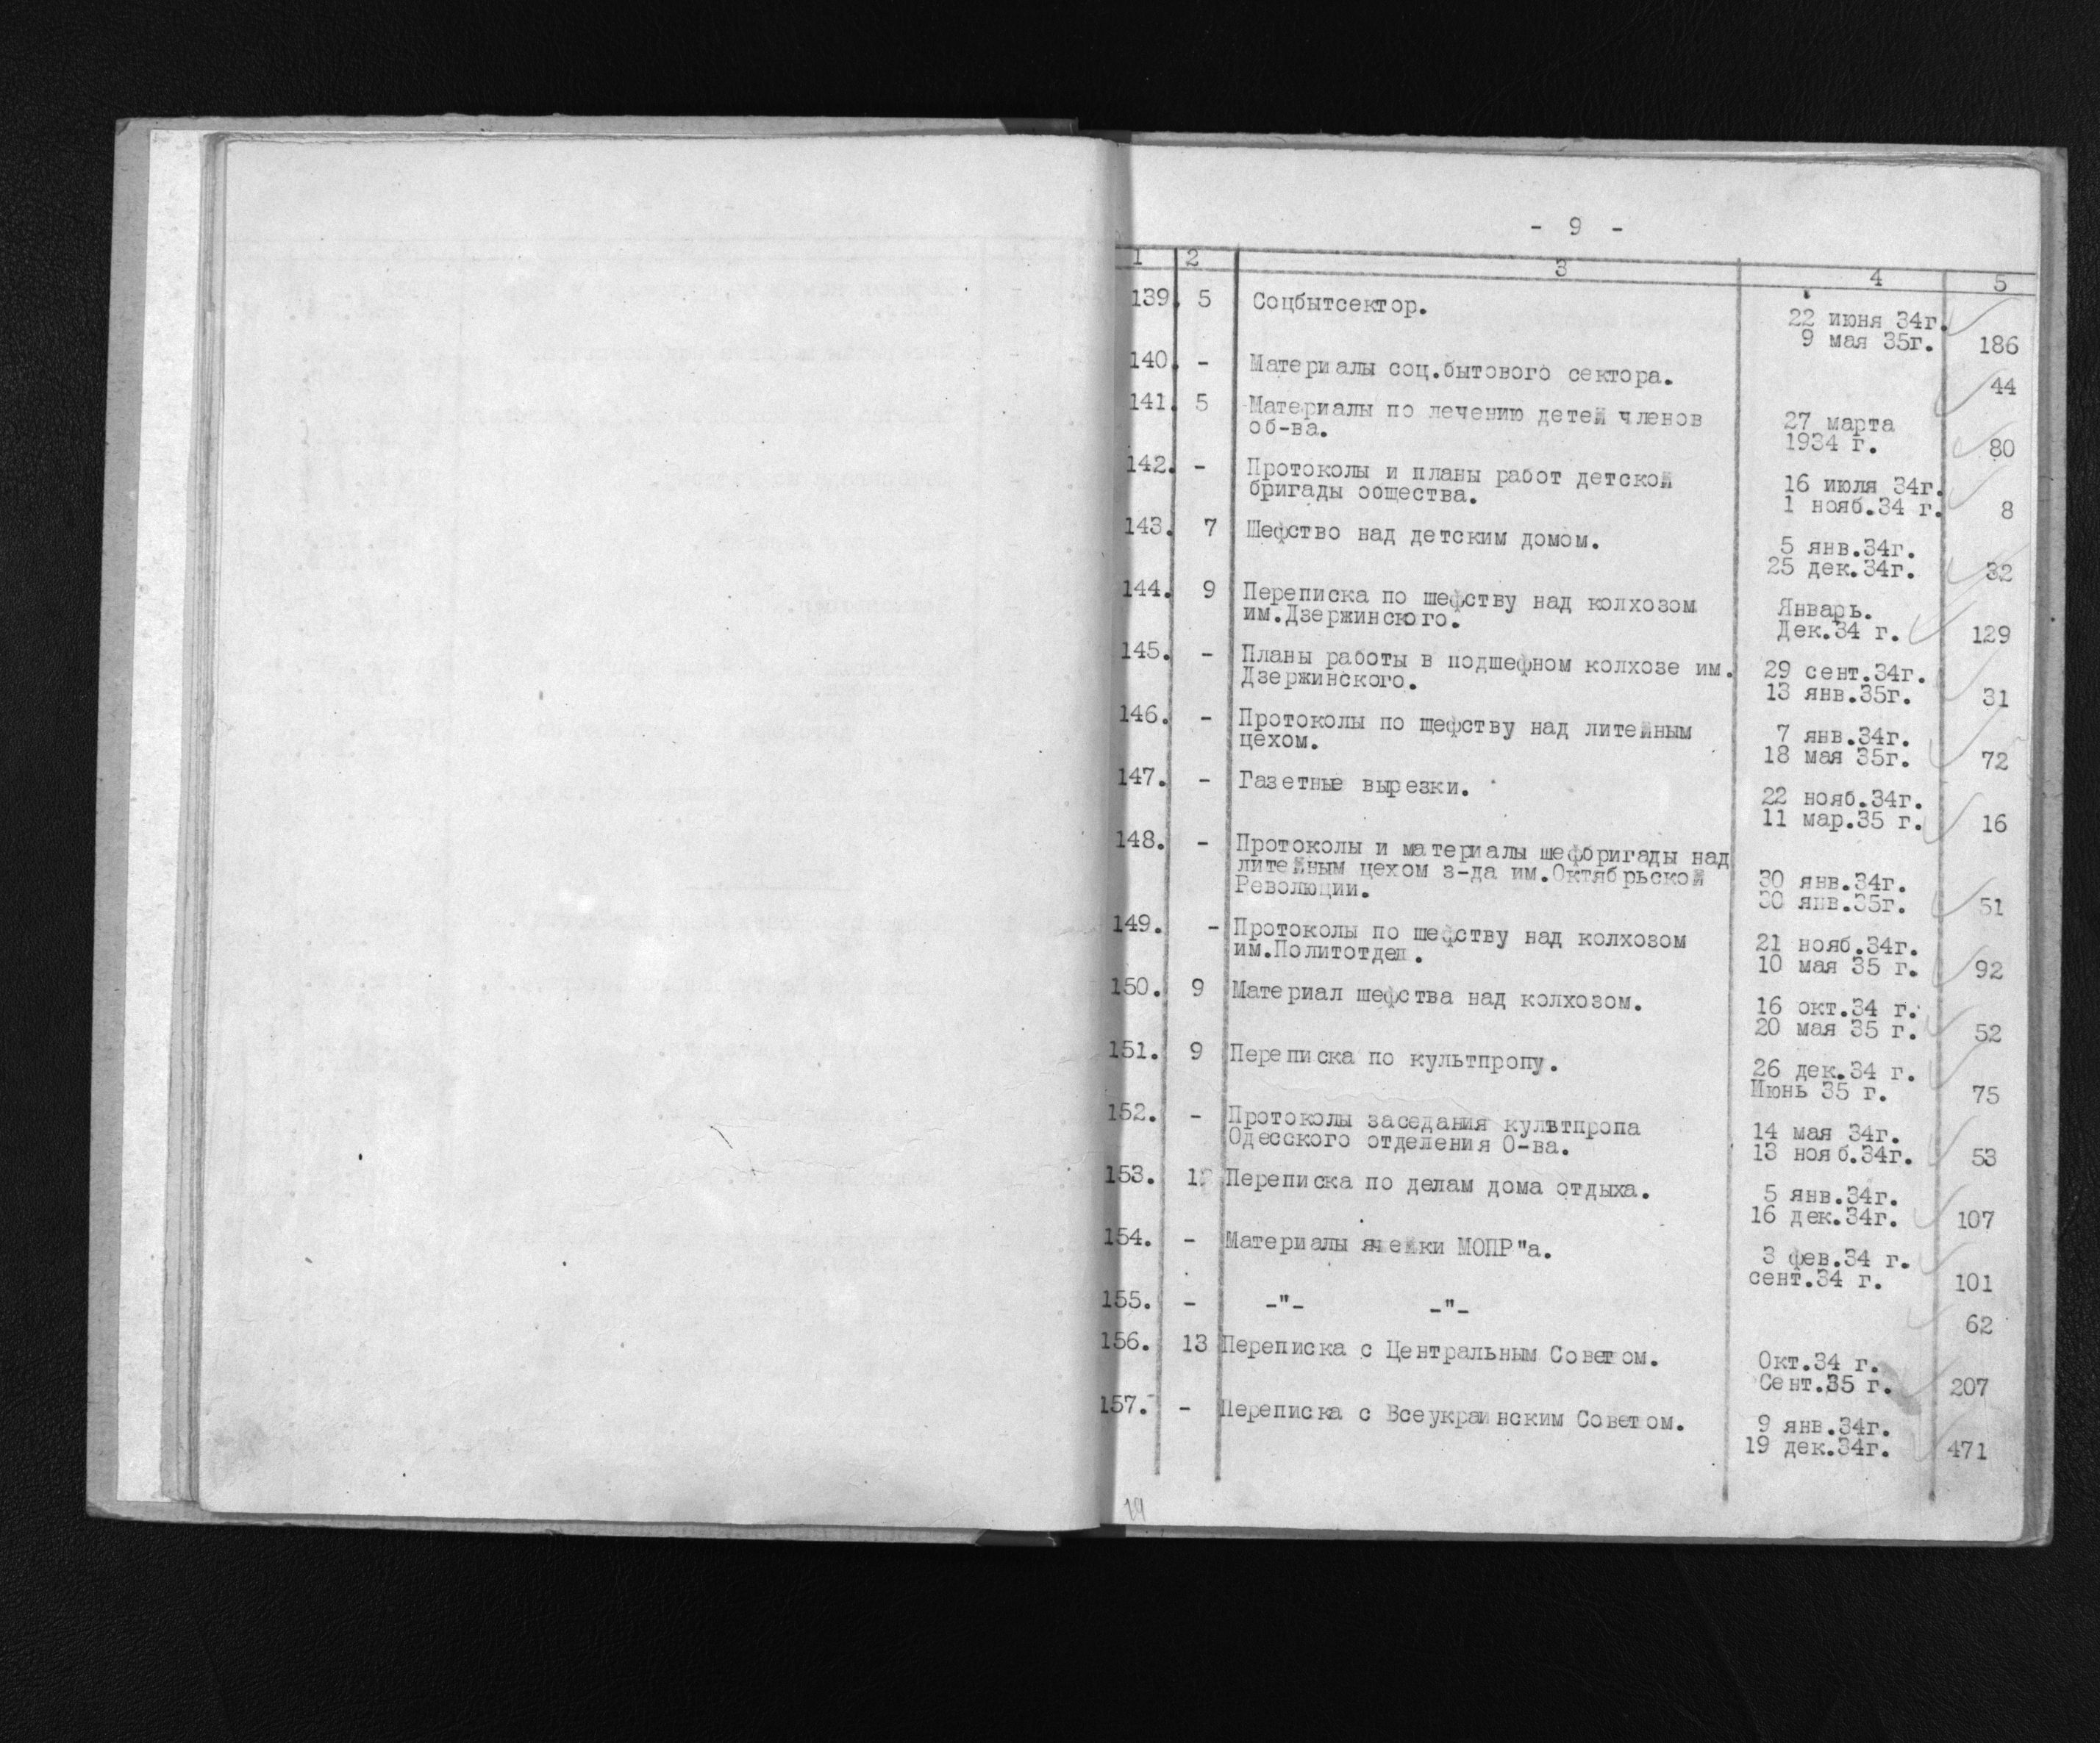 - 9 -
1 2 3 4 5
139. 5 Соцбытсектор. 22 июня 34г.
9 мая 35г. 186
140. - Материалы соц.бытового сектора. 44
141. 5 Материалы по лечению детей членов 27 марта
об-ва. 1934 г. 80
142. - Протоколы и планы работ детской 16 июля 34г.
бригады общества. 1 нояб.34 г. 8
143. 7 Шефство над детским домом. 5 янв.34г.
25 дек.34г. 32
144. 9 Переписка по шефству над колхозом Январь.
им.Дзержинского. Дек.34 г. 129
145. - Планы работы в подшефном колхозе им. 29 сент.34г.
Дзержинского. 13 янв.35г. 31
146. - Протоколы по шефству над литейным 7 янв.34г.
цехом. 18 мая 35г. 72
147. - Газетные вырезки. 22 нояб.34г.
11 мар.35 г. 16
148. - Протоколы и материалы шефбригады над
литейным цехом з-да им.Октябрьской 30 янв.34г.
Революции. 30 янв.35г. 51
149. - Протоколы по шефству над колхозом 21 нояб.34г.
им.Политотдел. 10 мая 35 г. 92
150. 9 Материал шефства над колхозом. 16 окт.34 г.
20 мая 35 г. 52
151. 9 Переписка по культпропу. 26 дек.34 г.
Июнь 35 г. 75
152. - Протоколы заседания культпропа 14 мая 34г.
Одесского отделения О-ва. 13 нояб.34г. 53
153. Переписка по делам дома отдыха. 5 янв.34г.
16 дек.34г. 107
154. - Материалы ячейки МОПР"а. 3 фев.34 г.
сент.34 г. 101
155. - -"- -"- 62
156. 13 Переписка с Центральным Советом. Окт.34 г.
Сент.35 г. 207
157. - Переписка с Всеукраинским Советом. 9 янв.34г.
19 дек.34г. 471